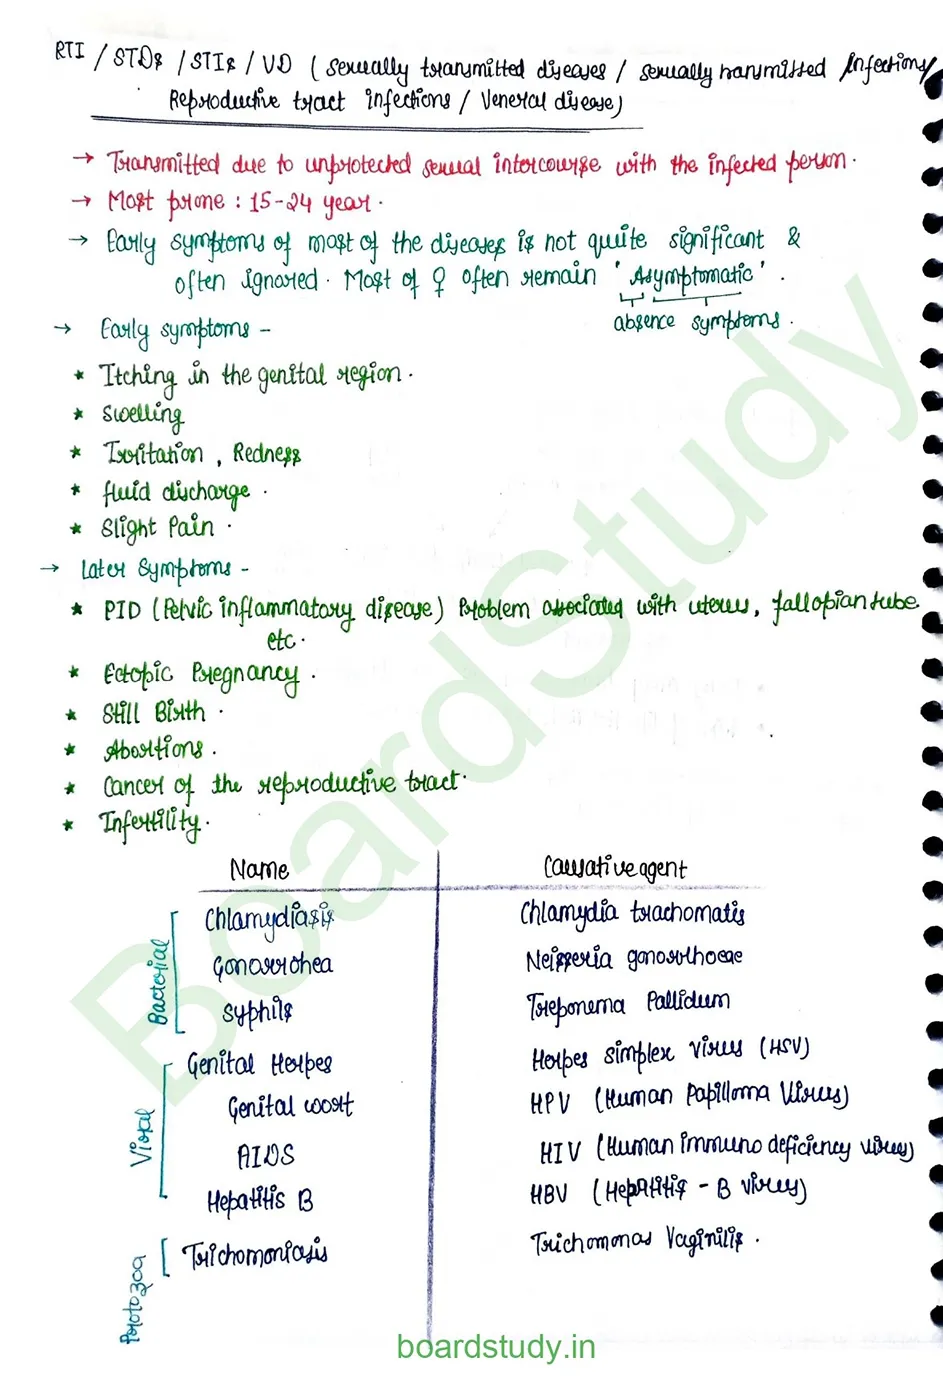 RTI / STDs / STIs / VD ( sexually transmitted diseases / sexually transmitted infections/
Reproductive tract infections / Veneral disease)
→ Transmitted due to unprotected sexual intercourse with the infected person.
→ Most prone : 15-24 year.
→ Early symptoms of most of the diseases is not quite significant &
often ignored. Most of ♀ often remain 'Asymptomatic'.
absence symptoms.
→ Early symptoms -
★ Itching in the genital region.
★ Swelling
★ Irritation, Redness
★ fluid discharge.
★ Slight Pain.
→ Later Symptoms -
★ PID (Pelvic inflammatory disease) Problem associated with uterus, fallopian tube
etc.
★ Ectopic Pregnancy.
★ Still Birth.
★ Abortions.
★ Cancer of the reproductive tract.
★ Infertility.
Name Causative agent
Bacterial
Chlamydiasis Chlamydia trachomatis
Gonorrohea Neisseria gonorrhoeae
Syphilis Treponema Pallidum
Viral
Genital Herpes Herpes simplex virus (HSV)
Genital wart HPV (Human Papilloma Virus)
AIDS HIV (Human immuno deficiency virus)
Hepatitis B HBV (Hepatitis - B virus)
Protozoa
Trichomoniasis Trichomonas Vaginilis.
BoardStudy
boardstudy.in